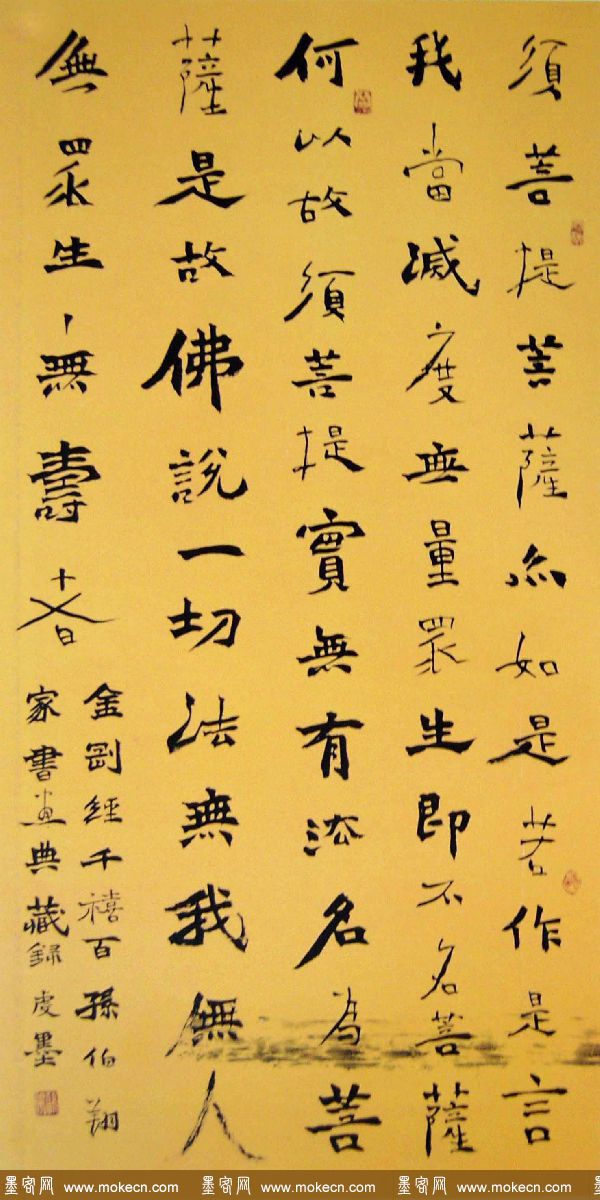 須菩提菩薩亦如是若作是言
我當滅度無量眾生即不名菩薩
何以故須菩提實無有法名為菩
薩是故佛說一切法無我無人
無眾生、無壽者
金剛經千禧百孫伯翔
家書畫典藏錄虔墨
墨客网 www.mokecn.com 墨客网 www.mokecn.com 墨客网 www.mokecn.com